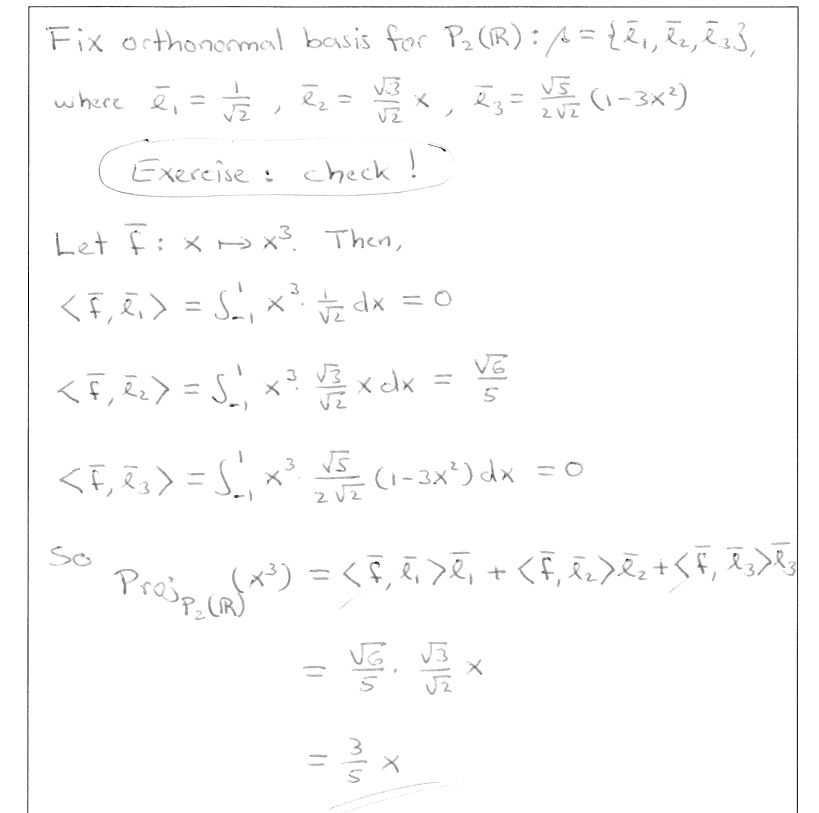 Fix orthonormal basis for P₂(ℝ): β = {ē₁, ē₂, ē₃},
where ē₁ = 1/√2 , ē₂ = √3/√2 x , ē₃ = √5/2√2 (1-3x²)
Exercise: check!
Let f̄: x ↦ x³. Then,
<f̄, ē₁> = ∫₋₁¹ x³· 1/√2 dx = 0
<f̄, ē₂> = ∫₋₁¹ x³· √3/√2 x dx = √6/5
<f̄, ē₃> = ∫₋₁¹ x³· √5/2√2 (1-3x²) dx = 0
So
Proj_P₂(ℝ) (x³) = <f̄, ē₁>ē₁ + <f̄, ē₂>ē₂ + <f̄, ē₃>ē₃
= √6/5 · √3/√2 x
= 3/5 x